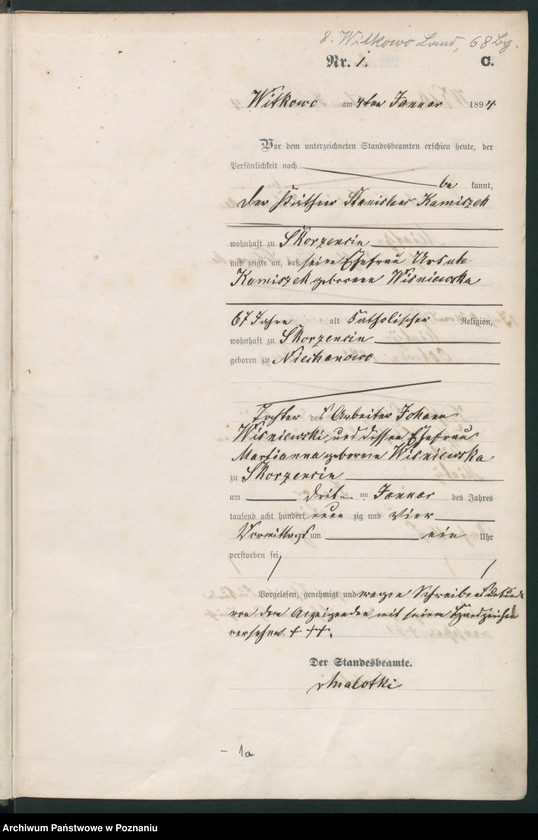 8. Witkowo Land, 68 Bg.
Nr. 1. C.
Witkowo am 4ten Januar 1894
Vor dem unterzeichneten Standesbeamten erschien heute, der
Persönlichkeit nach
be kannt,
der Stanislaus Kamiszek
wohnhaft zu Skorzencin
und zeigte an, daß seine Ehefrau Ursula
Kamiszek geborene Wiśniewska
67 Jahre alt katholischer Religion,
wohnhaft zu Skorzencin
geboren zu Niechanowo
Tochter des Arbeiter Johann
Wiśniewski und dessen Ehefrau
Marianna geborene Wiśniewska
zu Skorzencin
am drit ten Januar des Jahres
tausend acht hundert neun zig und vier
Vormittags um ein Uhr
verstorben sei
Vorgelesen, genehmigt und wegen Schreibens
von dem Anzeigenden mit seinem Handzeichen
versehen. † ††.
Der Standesbeamte.
Malotki
- 1a
Archiwum Państwowe w Poznaniu